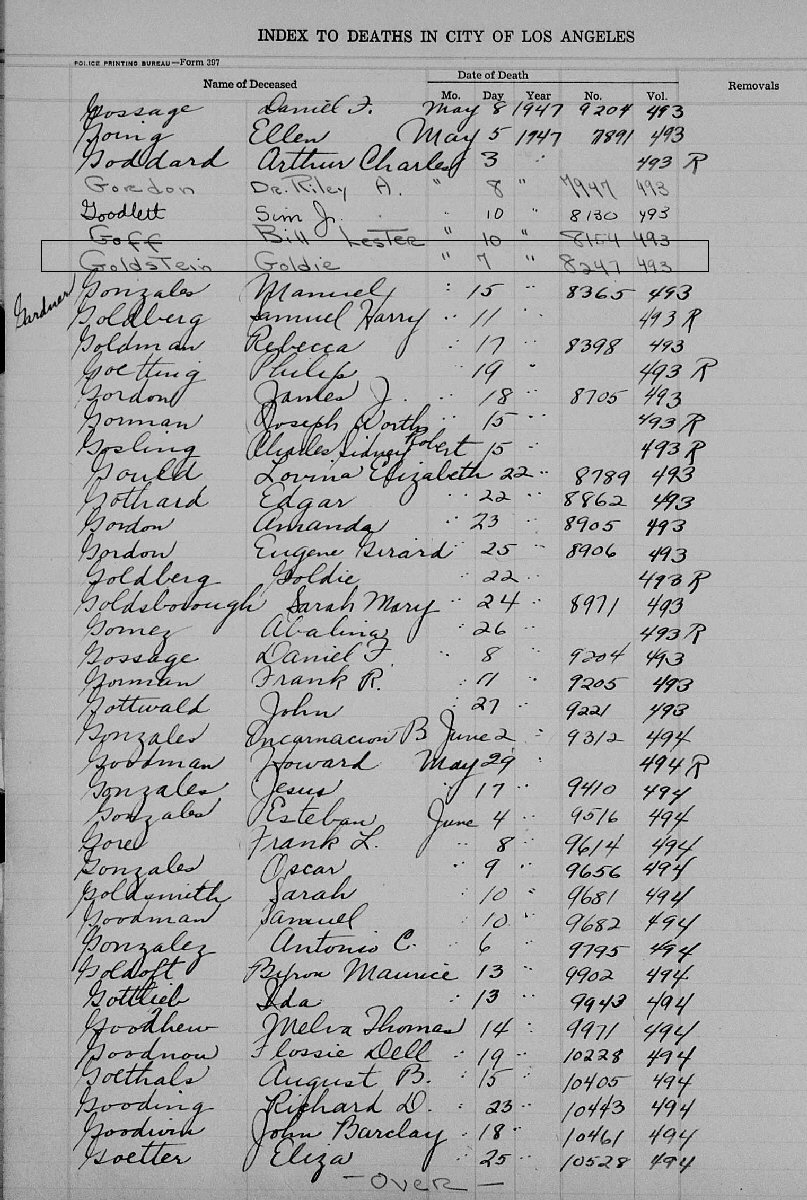 INDEX TO DEATHS IN CITY OF LOS ANGELES
POLICE PRINTING BUREAU—Form 397
Name of Deceased Date of Death Removals
Mo. Day Year No. Vol.
Gossage Daniel F. May 8 1947 9204 493
Going Ellen May 5 1947 7891 493
Goddard Arthur Charles 3 " 493 R
Gordon Dr. Riley A. " 8 " 7947 493
Goodlett Sim Jr. " 10 " 8130 493
Goff Bill Lester " 10 " 8154 493
Goldstein Goldie " 7 " 8247 493
Gonzales Manuel " 15 " 8365 493
Gardner Goldberg Samuel Harry " 11 " 493 R
Goldman Rebecca " 17 " 8398 493
Goetting Philip " 19 " 493 R
Gordon James J. " 18 " 8705 493
Gorman Joseph Worth " 15 " 493 R
Gosling Charles Sidney Robert 15 " 493 R
Gould Lovina Elizabeth 22 " 8789 493
Gothard Edgar " 22 " 8862 493
Gordon Amanda " 23 " 8905 493
Gordon Eugene Girard " 25 " 8906 493
Goldberg Goldie " 22 " 493 R
Goldsborough Sarah Mary " 24 " 8971 493
Gomez " 26 " 493 R
Gossage Daniel F. " 8 " 9204 493
Gorman Frank R. " 11 " 9205 493
Gottwald John " 27 " 9221 493
Gonzales Encarnacion B June 2 " 9312 494
Goodman Howard May 29 " 494 R
Gonzales Jesus " 17 " 9410 494
Gonzales Esteban June 4 " 9516 494
Gore Frank L. " 8 " 9614 494
Gonzales Oscar " 9 " 9656 494
Goldsmith Sarah " 10 " 9681 494
Goodman Samuel " 10 " 9682 494
Gonzalez Antonio C. " 6 " 9795 494
Goldoft Byron Maurice 13 " 9902 494
Gottlieb Ida " 13 " 9943 494
Goodhew Melva Thomas 14 " 9971 494
Goodnow Flossie Dell " 19 " 10228 494
Goethals August B. " 15 " 10405 494
Gooding Richard D. " 23 " 10443 494
Goodwin John Barclay " 18 " 10461 494
Goetter Eliza " 25 " 10528 494
- OVER -